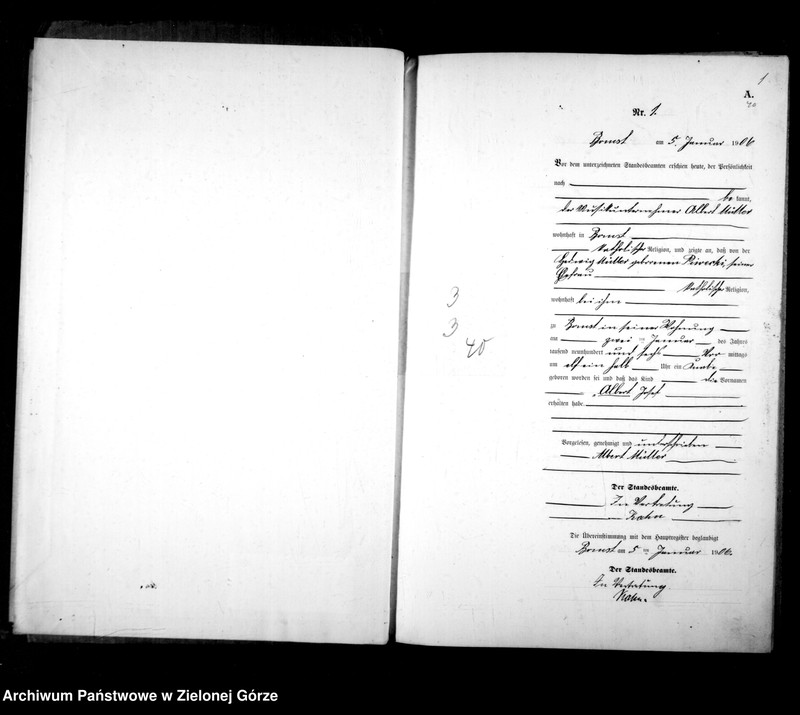 1
A.
40
Nr. 1.
Bomst am 5. Januar 1906
Vor dem unterzeichneten Standesbeamten erschien heute, der Persönlichkeit
nach
be kannt,
der Musikunternehmer Albert Müller
wohnhaft in Bomst
katholischer Religion, und zeigte an, daß von der
Hedwig Müller geborenen Piwecki, seiner
Ehefrau
katholischer Religion,
wohnhaft bei ihm
zu Bomst in seiner Wohnung
am zwei ten Januar des Jahres
tausend neunhundert und sechs Vor mittags
um elf ein halb Uhr ein Knabe
geboren worden sei und daß das Kind die Vornamen
Albert Josef
erhalten habe.
Vorgelesen, genehmigt und unterschrieben
Albert Müller
Der Standesbeamte.
In Vertretung
Die Übereinstimmung mit dem Hauptregister beglaubigt
Bomst am 5 ten Januar 1906.
Der Standesbeamte.
In Vertretung
3
3
40
Archiwum Państwowe w Zielonej Górze